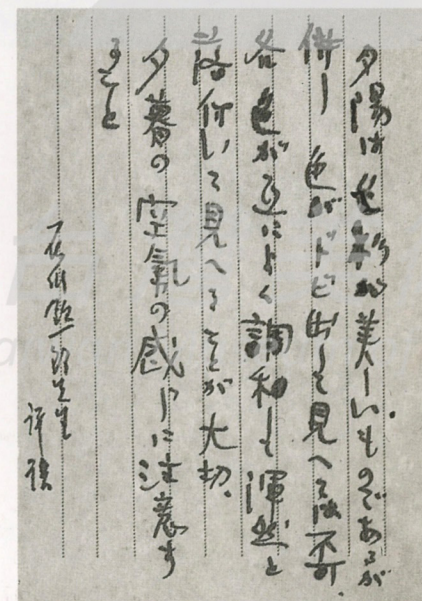 夕陽は色彩が美しいものであるが
併し色がトビ出して見へるは不可、
各色が互によく調和して渾然と
落付いて見へることが大切、
夕暮の空氣の感じに注意す
ること
石川欽一郎先生
評語